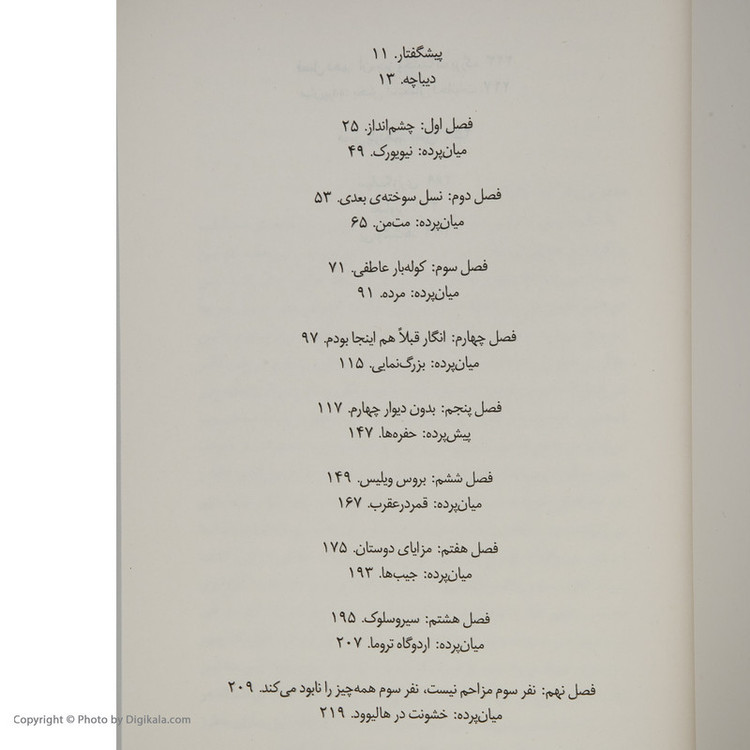 پیشگفتار. ۱۱
دیباچه. ۱۳
فصل اول: چشم‌انداز. ۲۵
میان‌پرده: نیویورک. ۴۹
فصل دوم: نسل سوخته‌ی بعدی. ۵۳
میان‌پرده: مت‌من. ۶۵
فصل سوم: کوله‌بار عاطفی. ۷۱
میان‌پرده: مرده. ۹۱
فصل چهارم: انگار قبلاً هم اینجا بودم. ۹۷
میان‌پرده: بزرگ‌نمایی. ۱۱۵
فصل پنجم: بدون دیوار چهارم. ۱۱۷
پیش‌پرده: حفره‌ها. ۱۴۷
فصل ششم: بروس ویلیس. ۱۴۹
میان‌پرده: قمردرعقرب. ۱۶۷
فصل هفتم: مزایای دوستان. ۱۷۵
میان‌پرده: جیب‌ها. ۱۹۳
فصل هشتم: سیروسلوک. ۱۹۵
میان‌پرده: اردوگاه تروما. ۲۰۷
فصل نهم: نفر سوم مزاحم نیست، نفر سوم همه‌چیز را نابود می‌کند. ۲۰۹
میان‌پرده: خشونت در هالیوود. ۲۱۹
Copyright © Photo by Digikala.com